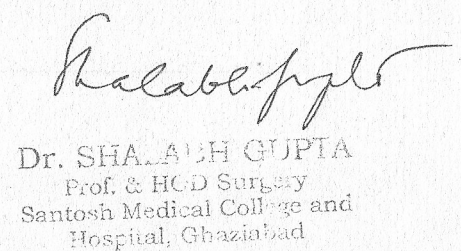 Shalabh Gupta
Dr. SHALABH GUPTA
Prof. & HOD Surgery
Santosh Medical College and
Hospital, Ghaziabad